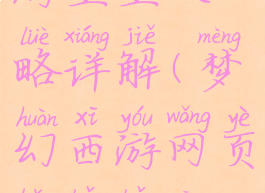 lüè xiáng jiě mèng
略详解(梦
huàn xī yóu wǎng yè
幻西游网页